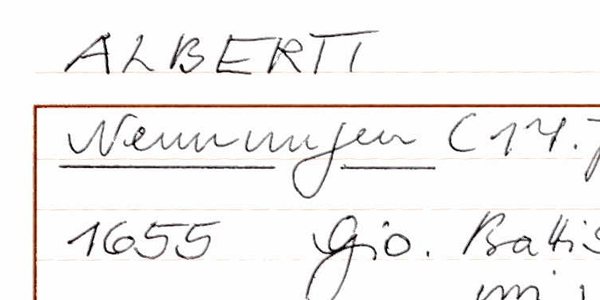 ALBERTI
Nennungen (17.J
1655 Gio. Battis